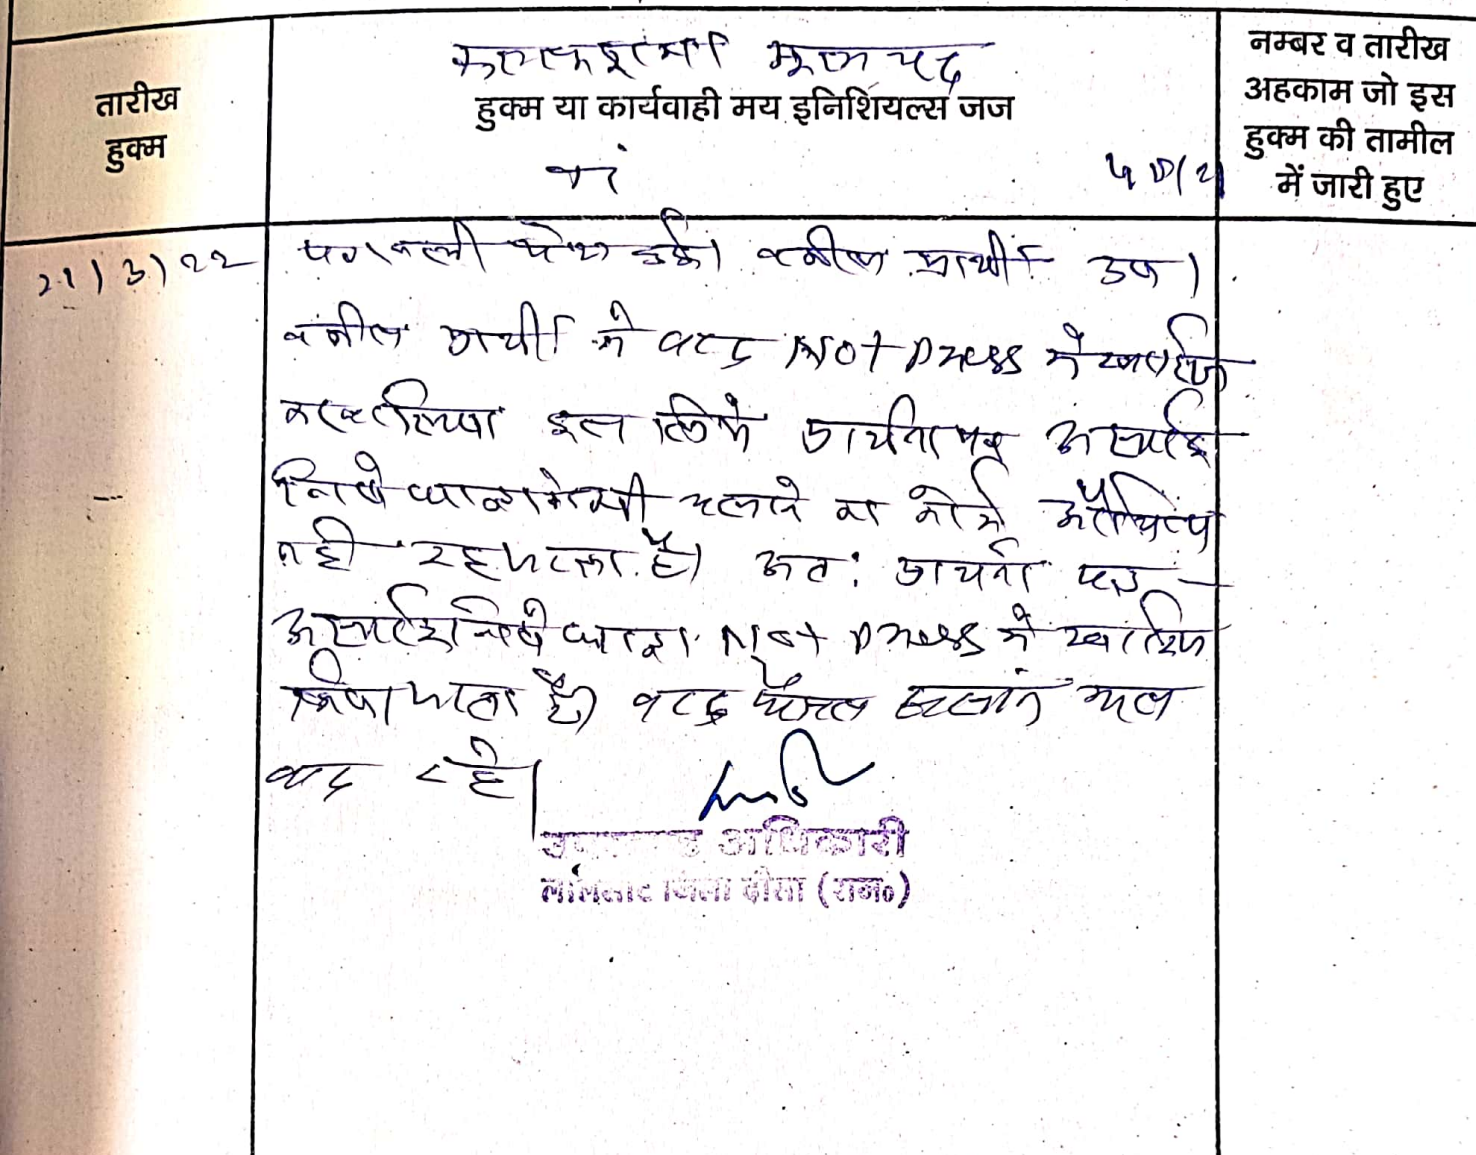 तारीख
हुक्म
मूलचन्द
हुक्म या कार्यवाही मय इनिशियल्स जज
नम्बर व तारीख
अहकाम जो इस
हुक्म की तामील
में जारी हुए
21/3/22 पत्रावली पेश हुई। वकील प्रार्थी उप।
वकील प्रार्थी ने वाद Not Press में खारिज
करा लिया इस लिये प्रार्थना पत्र अस्थाई
निषेधाज्ञा चलाने का कोई औचित्य
नही रह जाता है। अत: प्रार्थना पत्र
अस्थाई निषेधाज्ञा Not Press में खारिज
किया जाता है। बाद फैसल संलग्न मूल
वाद रहे।
उपखण्ड अधिकारी
जिला दौसा (राज०)